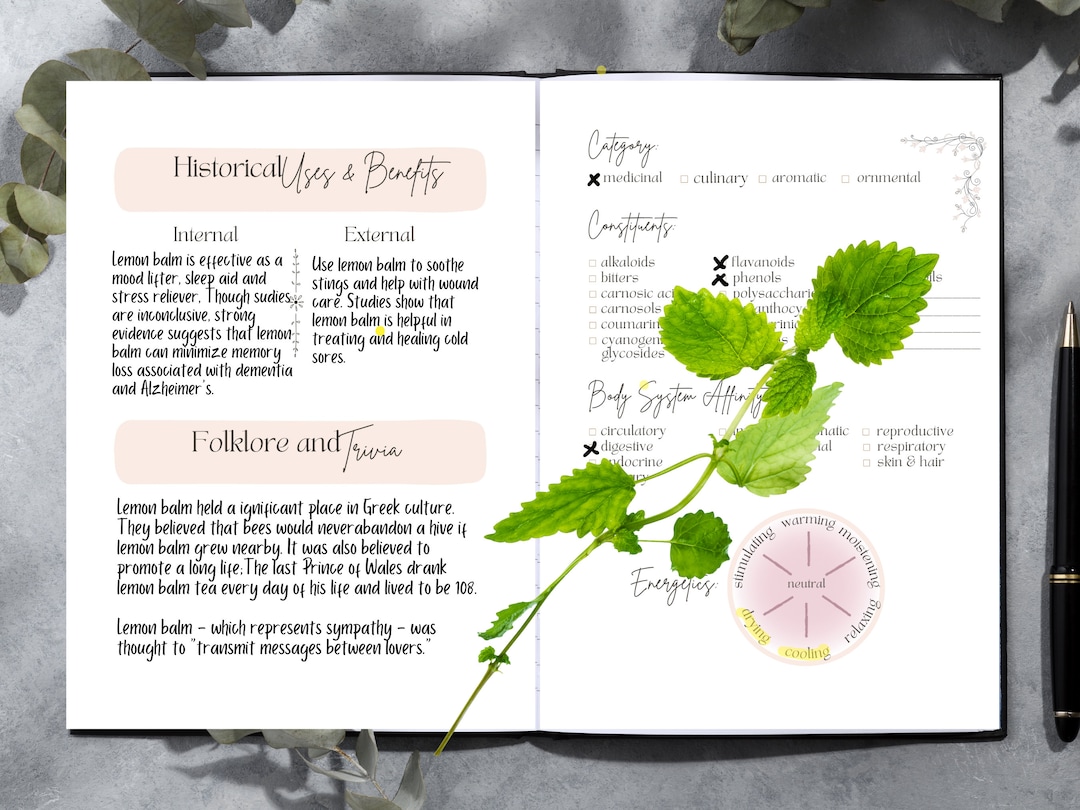 Historical Uses & Benefits
Internal
Lemon balm is effective as a
mood lifter, sleep aid and
stress reliever. Though sudies
are inconclusive, strong
evidence suggests that lemon
balm can minimize memory
loss associated with dementia
and Alzheimer's.
External
Use lemon balm to soothe
stings and help with wound
care. Studies show that
lemon balm is helpful in
treating and healing cold
sores.
Folklore and Trivia
Lemon balm held a ignificant place in Greek culture.
They believed that bees would neverabandon a hive if
lemon balm grew nearby. It was also believed to
promote a long life;The last Prince of Wales drank
lemon balm tea every day of his life and lived to be 108.
Lemon balm - which represents sympathy - was
thought to "transmit messages between lovers."
Category:
medicinal culinary aromatic ornmental
Constituents:
alkaloids
bitters
carnosic
carnosols
glycosides
flavanoids
phenols
Body System Affinity
circulatory
digestive
reproductive
respiratory
skin & hair
Energetics:
stimulating warming moistening
neutral
drying cooling relaxing